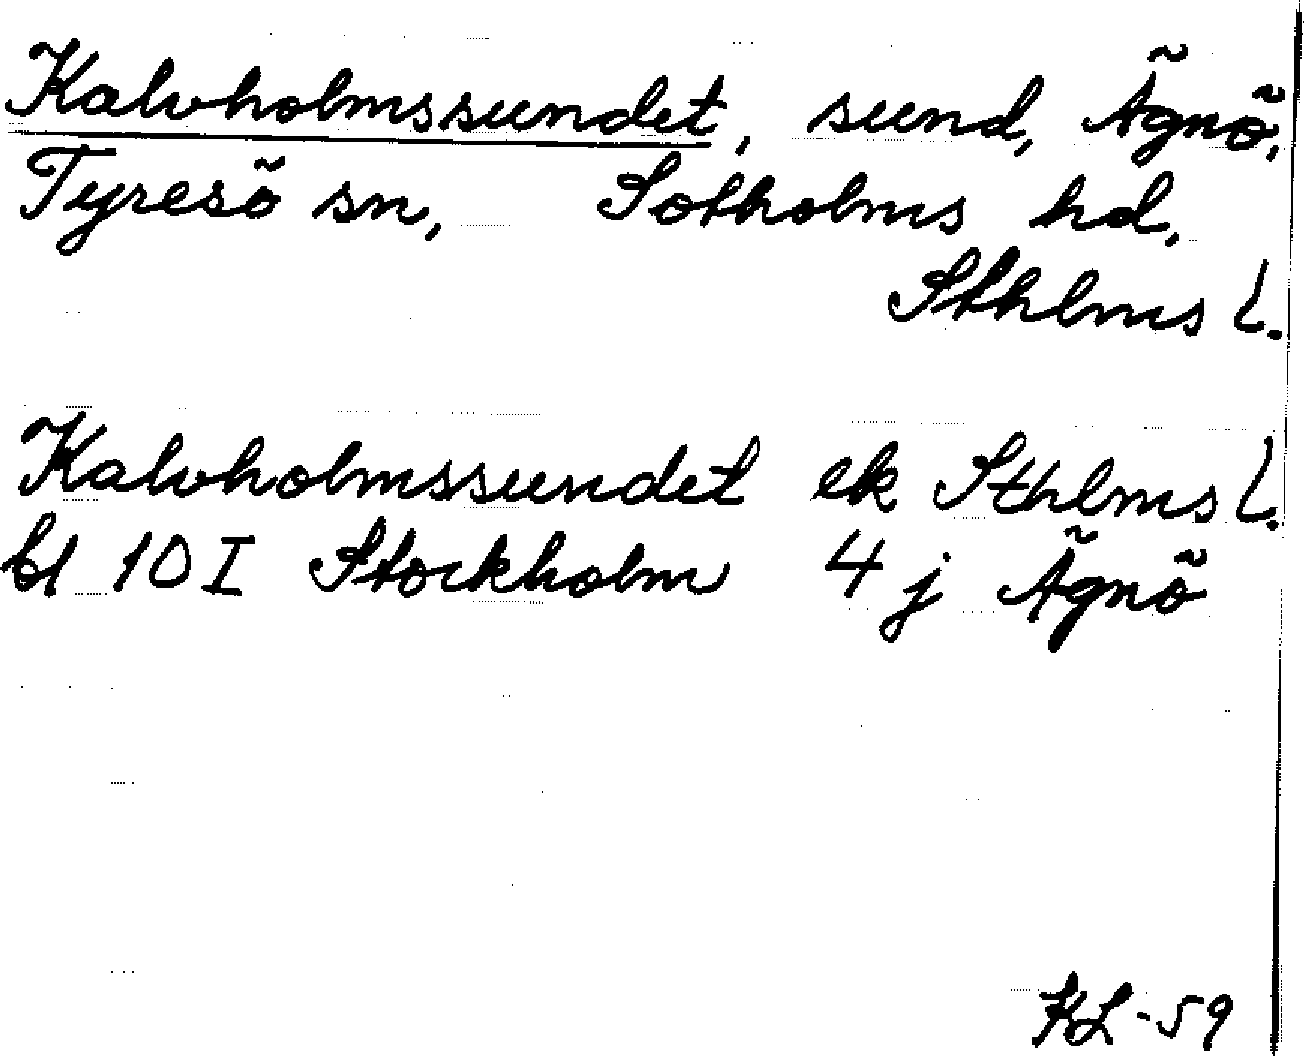 Kalvholmssundet, sund, Ägnö,
Tyresö sn, Sotholms hd,
Sthlms l.
Kalvholmssundet ek Sthlms l.
bl 10 I Stockholm 4 j Ägnö
KL-59